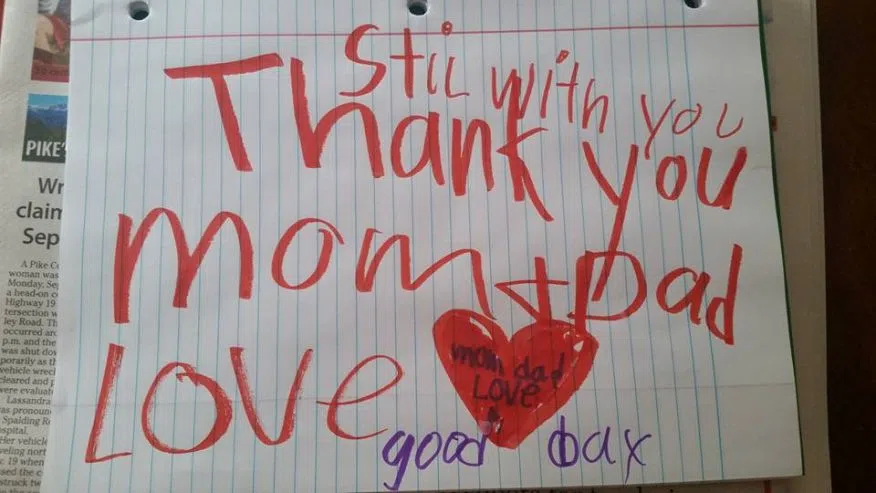 Stil with you
Thank you
mom + Dad
LOVe
mom dad
LOVe
good bax
PIKE'S
Wr
claim
Sep
A Pike Co
woman was
Monday, Sep
a head-on c
Highway 19
tersection w
ley Road. Th
occurred aro
p.m. and the
was shut dow
porarily as th
vehicle wreck
cleared and p
were evaluate
Lassandra
as pronoun
Spalding Re
ospital.
Her vehicle
veling nort
19 when
sed the c
struck tw